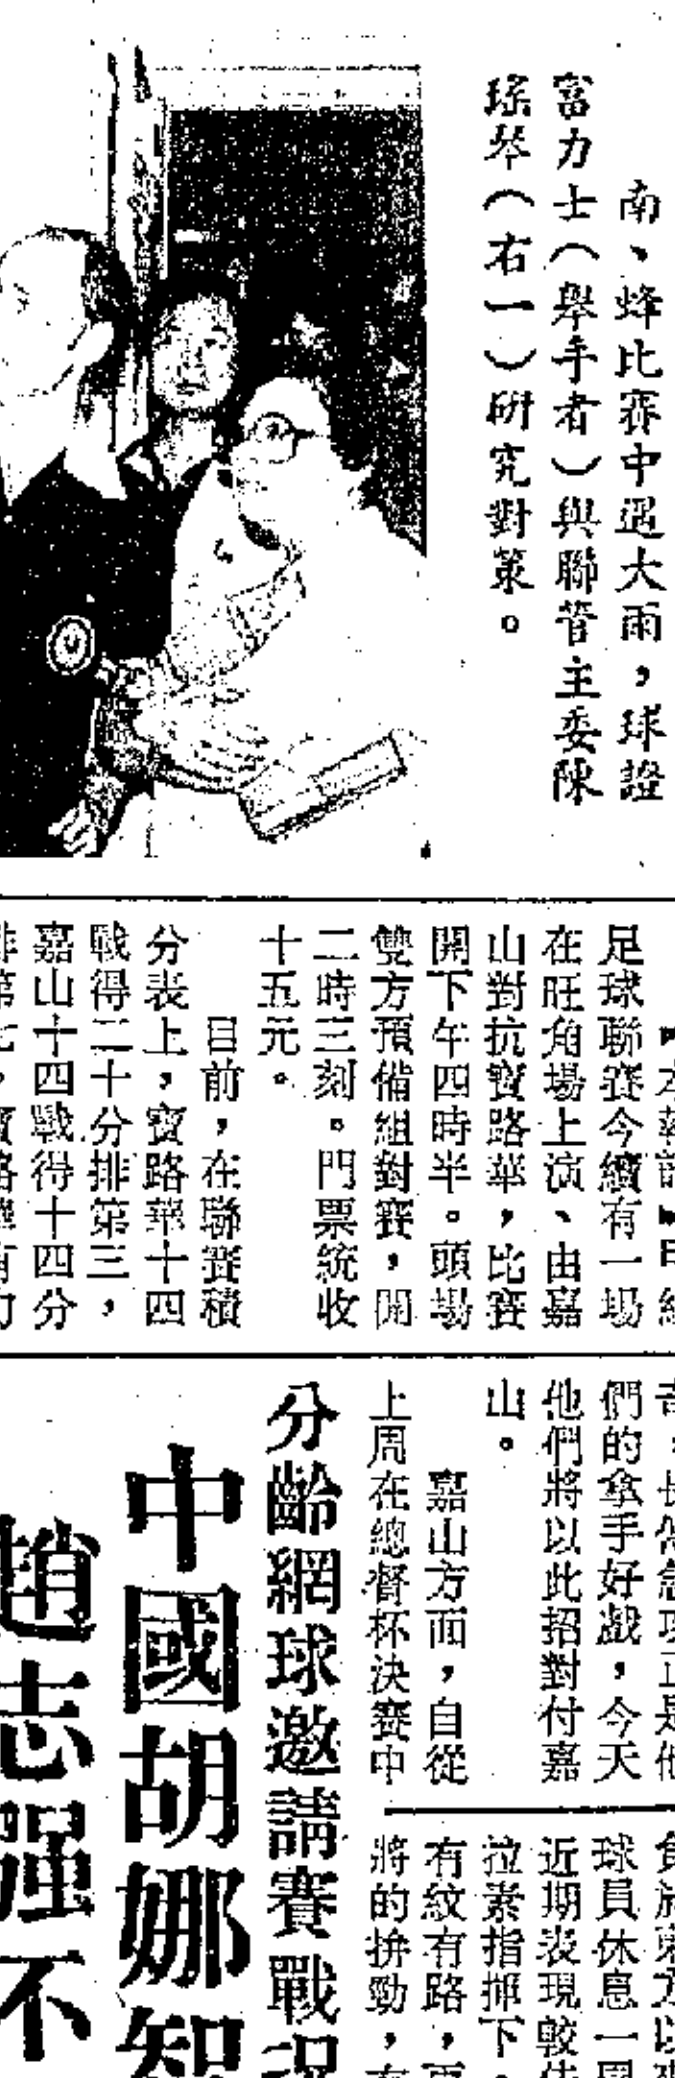 南、蜂比賽中遇大雨，球證
富力士（舉手者）與聯管主委陳
瑤琴（右一）研究對策。
足球聯賽今續有一場
在旺角場上演、由嘉
山對抗寶路華，比賽
開下午四時半。頭場
雙方預備組對賽，開
二時三刻。門票統收
十五元。
目前，在聯賽積
分表上，寶路華十四
戰得二十分排第三，
嘉山十四戰得十四分
們的拿手好戲，今天
他們將以此招對付嘉
山。
嘉山方面，自從
上周在總督杯決賽中
球員休息一周
近期表現較佳
拉素指揮下。
有紋有路，更
將的拚勁，有
分齡網球邀請賽戰況
中國胡娜智
趙志强不